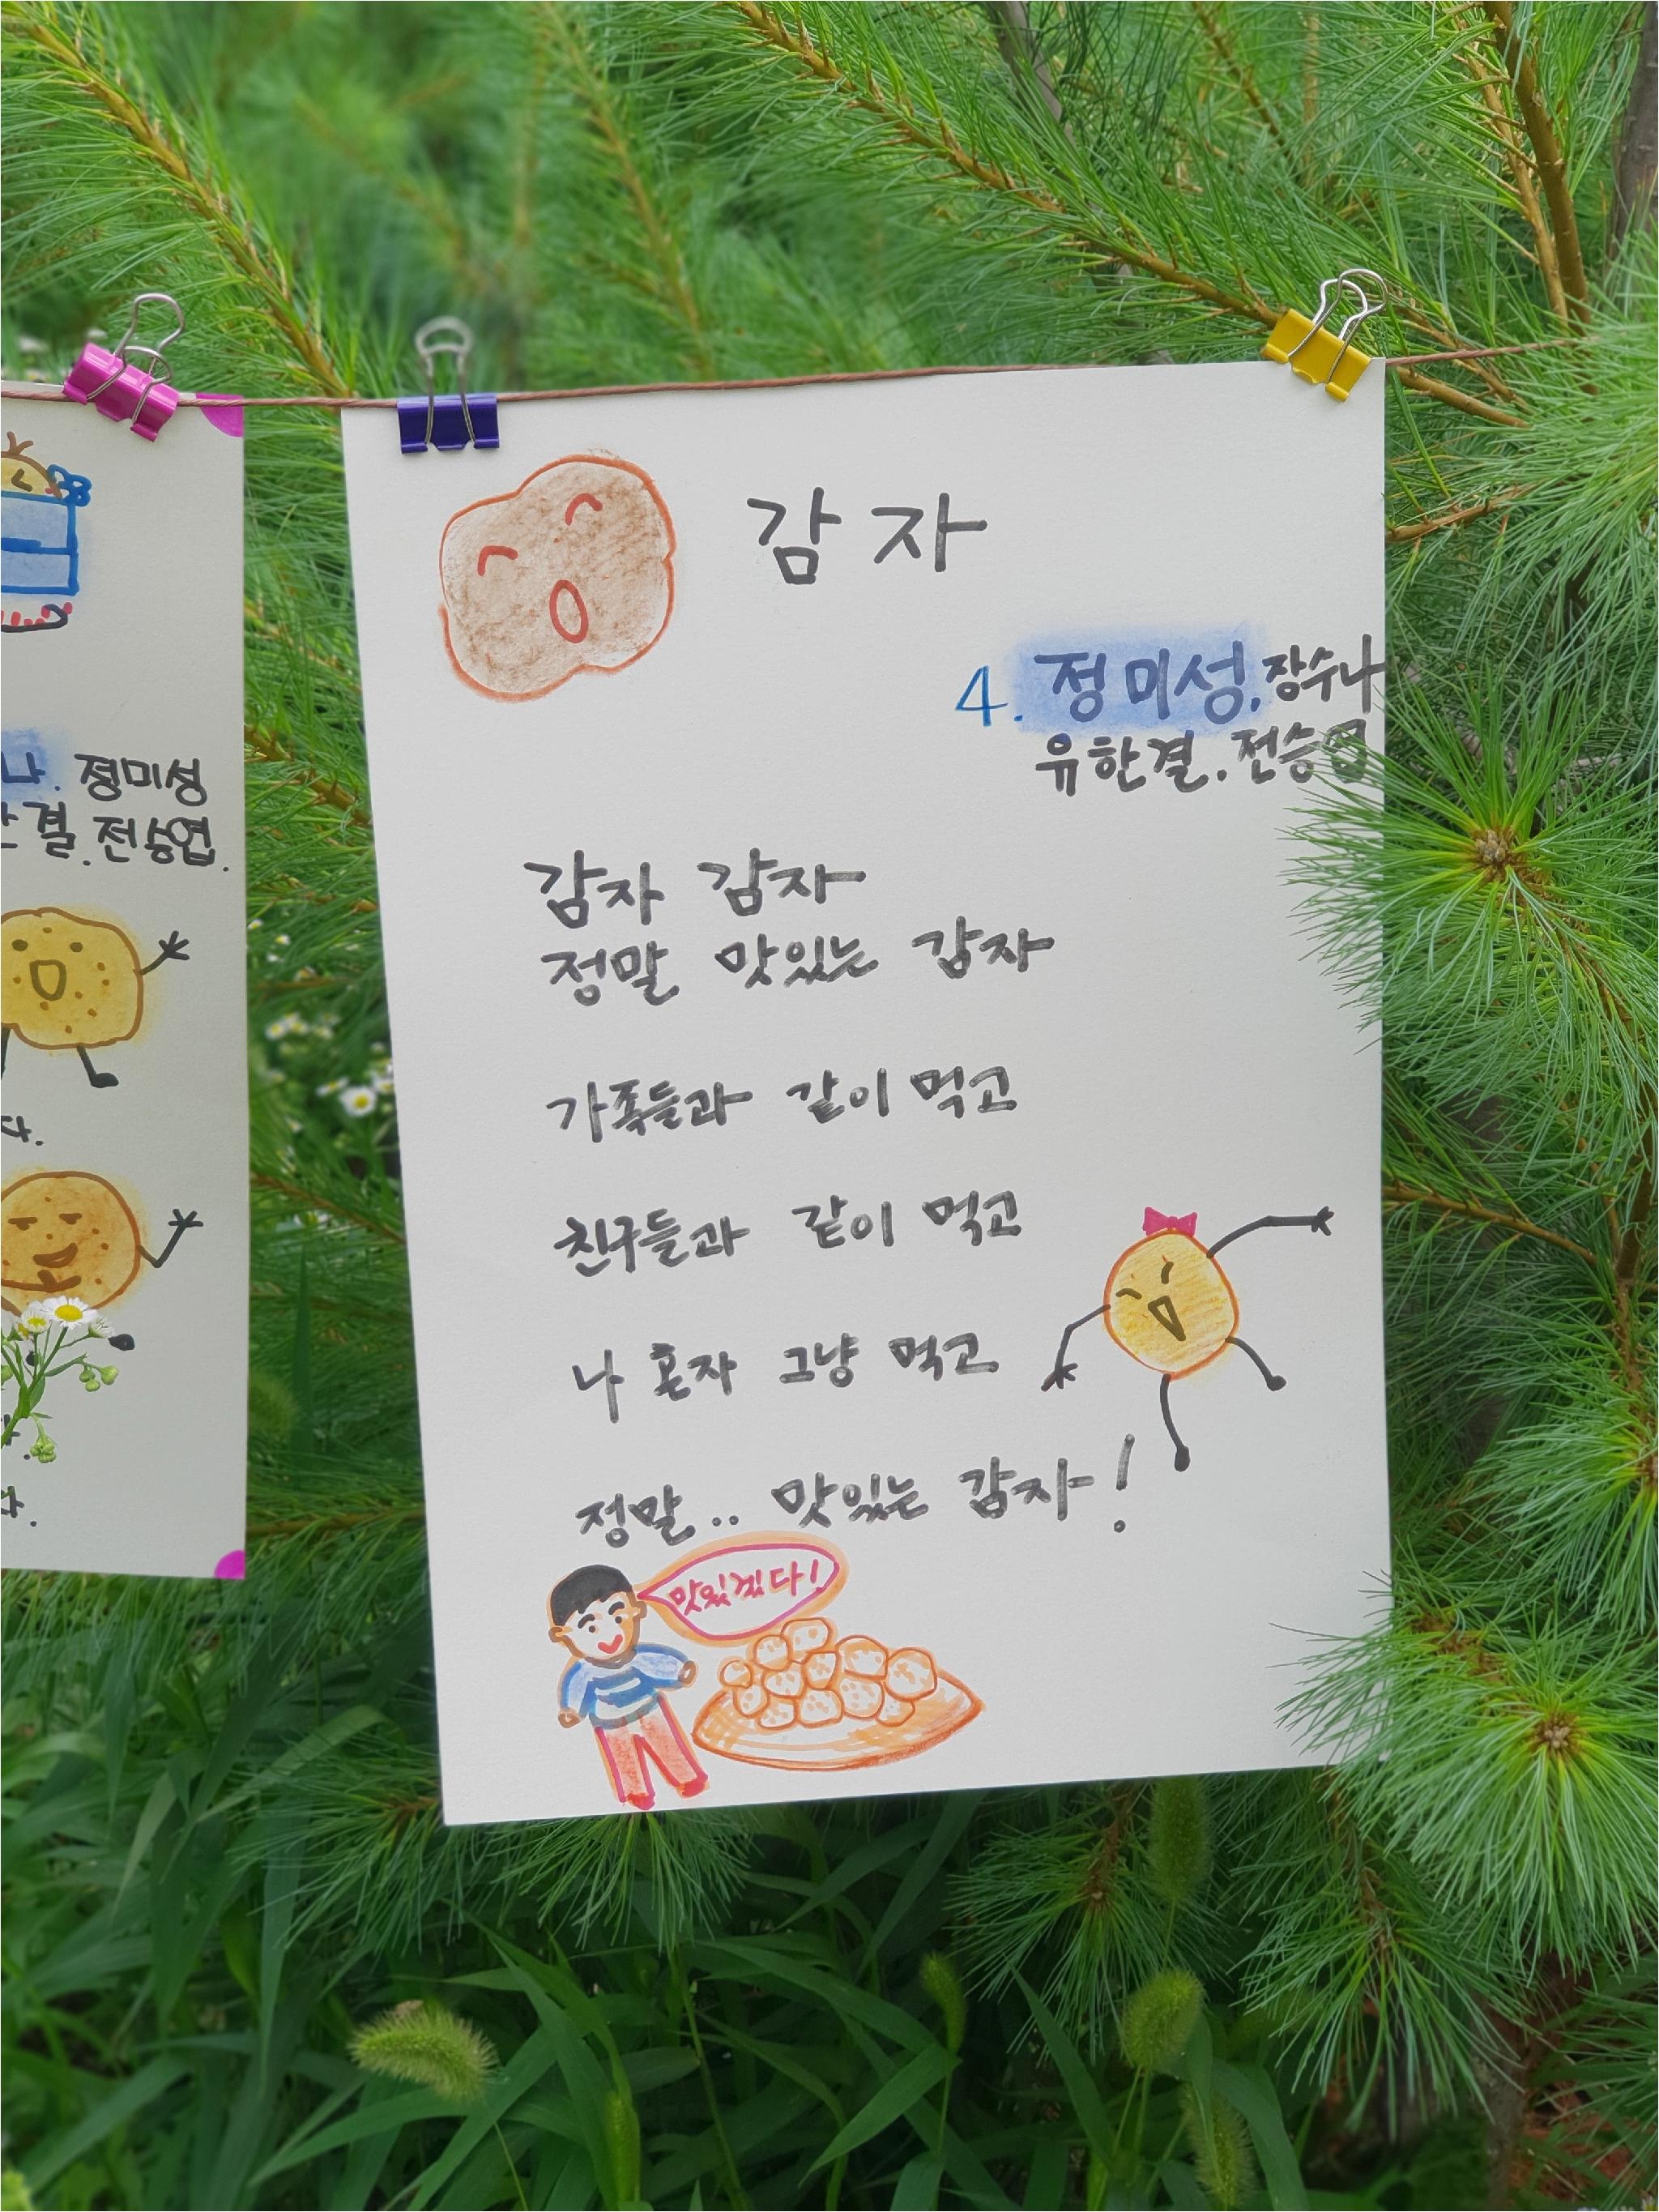 나. 정미성
결. 전승엽.
다.
다.
감자
4. 정미성. 장수나
유한결. 전승엽
감자 감자
정말 맛있는 감자
가족들과 같이 먹고
친구들과 같이 먹고
나 혼자 그냥 먹고
정말.. 맛있는 감자!
맛있겠다!